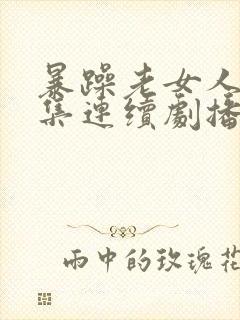 暴躁老女人
集連續劇播
雨中的玫瑰花